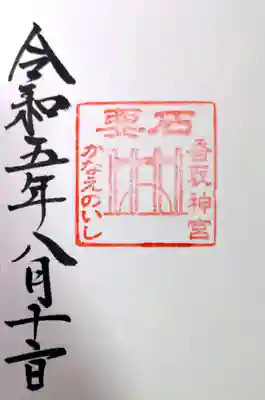 要石
香取神宮
かなえのいし
令和五年八月十一日